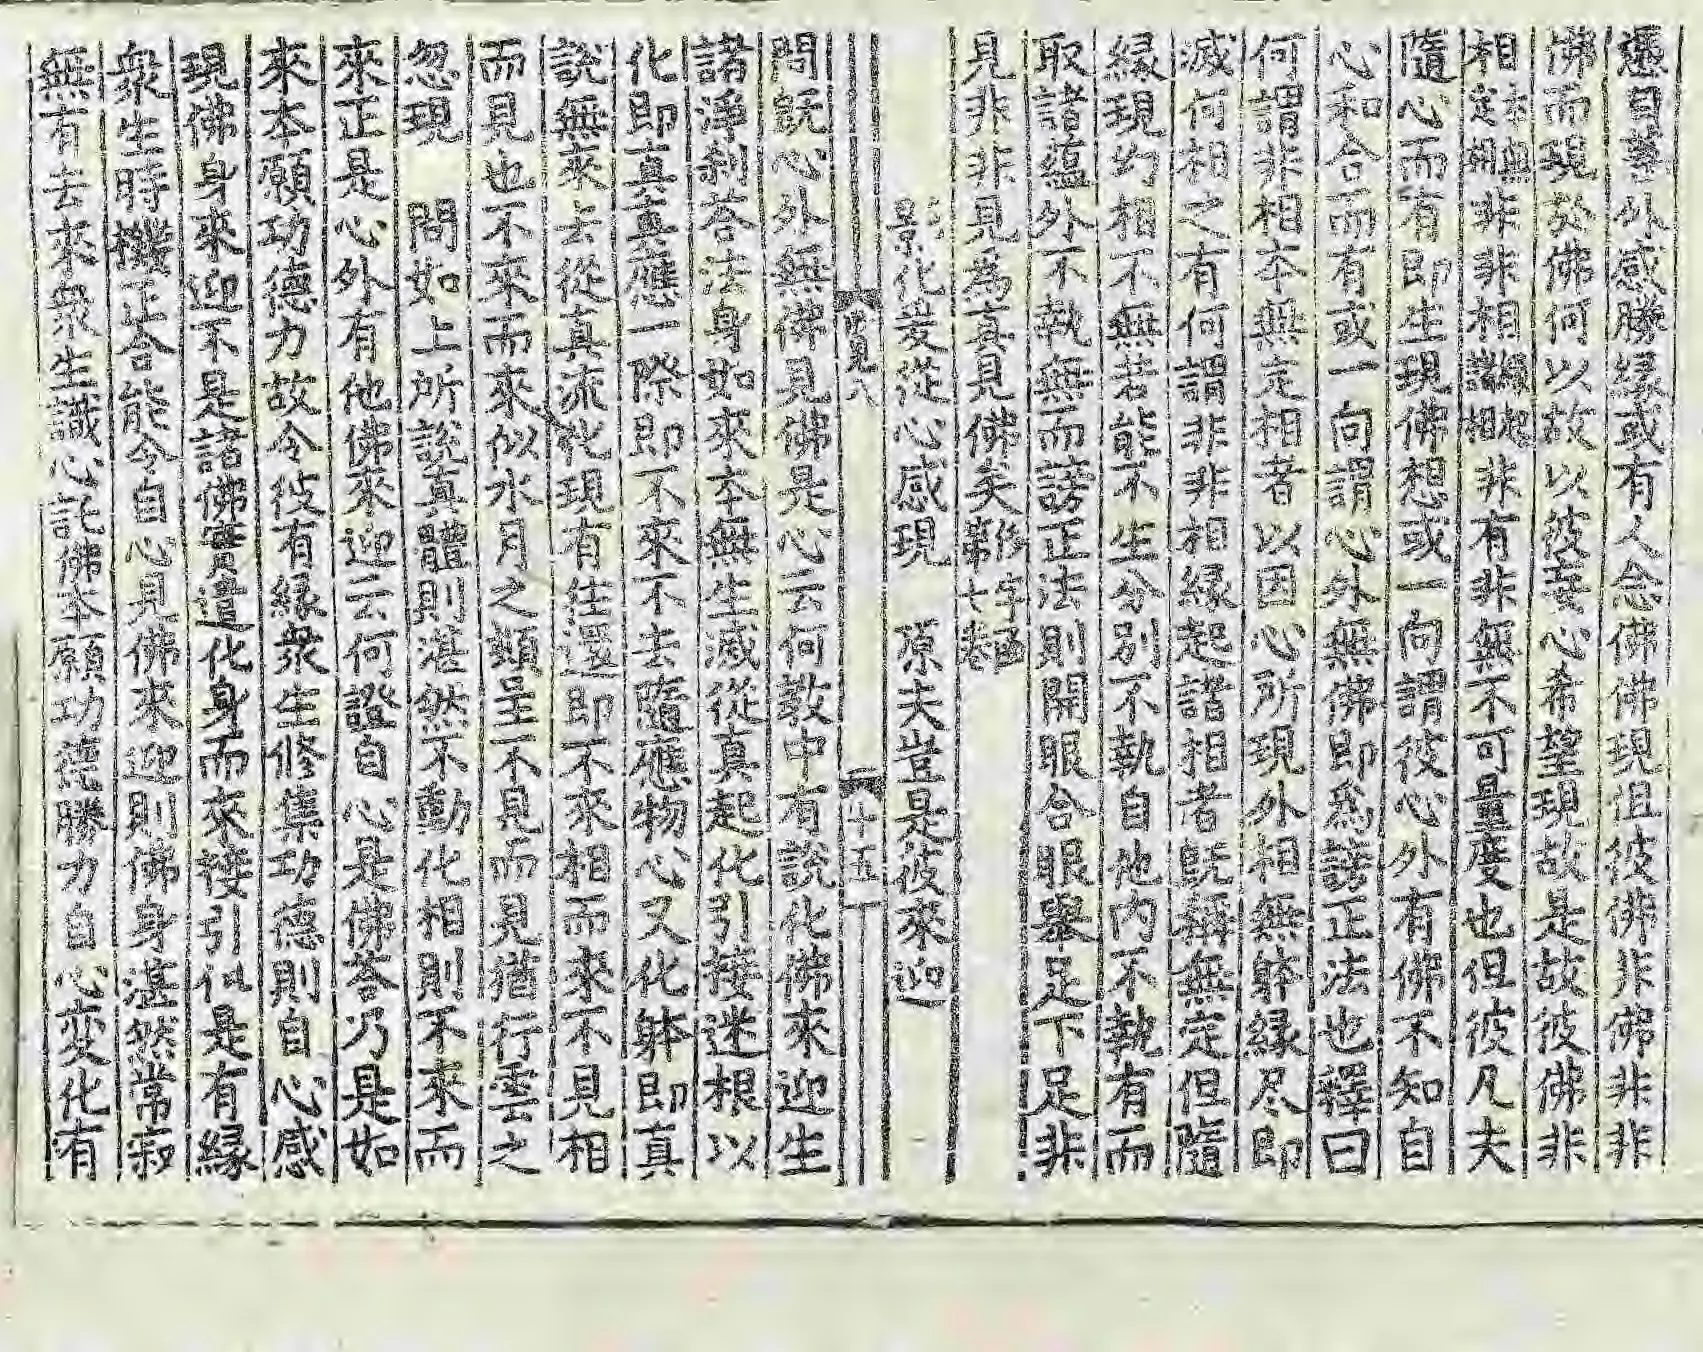 憑自業外感勝緣或有人念佛佛現且彼佛非佛非非
佛而現於佛何以故以彼妄心希望現故是故彼佛非
相本無定相非非相諸相起非有非無不可量度也但彼凡夫
隨心而有即生現佛想或一向謂彼心外有佛不知自
心和合而有或一向謂心外無佛即為謗正法也釋曰
何謂非相本無定相者以因心所現外相無躰緣尽即
滅何相之有何謂非非相緣起諸相者既稱無定但隨
緣現幻相不無若能不生分別不執自他內不執有而
取諸蘊外不執無而謗正法則開眼合眼舉足下足非
見非非見為真見佛矣
影化芰從心感現 原夫豈是彼來迎
見八 十五
問既心外無佛見佛是心云何教中有說化佛來迎生
諸淨剎荅法身如來本無生滅從真起化引接迷根以
化即真真應一際即不來不去隨應物心又化躰即真
說無來去從真流化現有往還即不來相而來不見相
而見也不來而來似水月之頓呈不見而見猶行雲之
忽現 問如上所說真體則湛然不動化相則不來而
來正是心外有他佛來迎云何證自心是佛荅乃是如
來本願功德力故令彼有緣衆生修集功德則自心感
現佛身來迎不是諸佛實遣化身而來接引但是有緣
衆生時機正合能令自心見佛來迎則佛身湛然常寂
無有去來衆生識心託佛本願功德勝力自心変化有